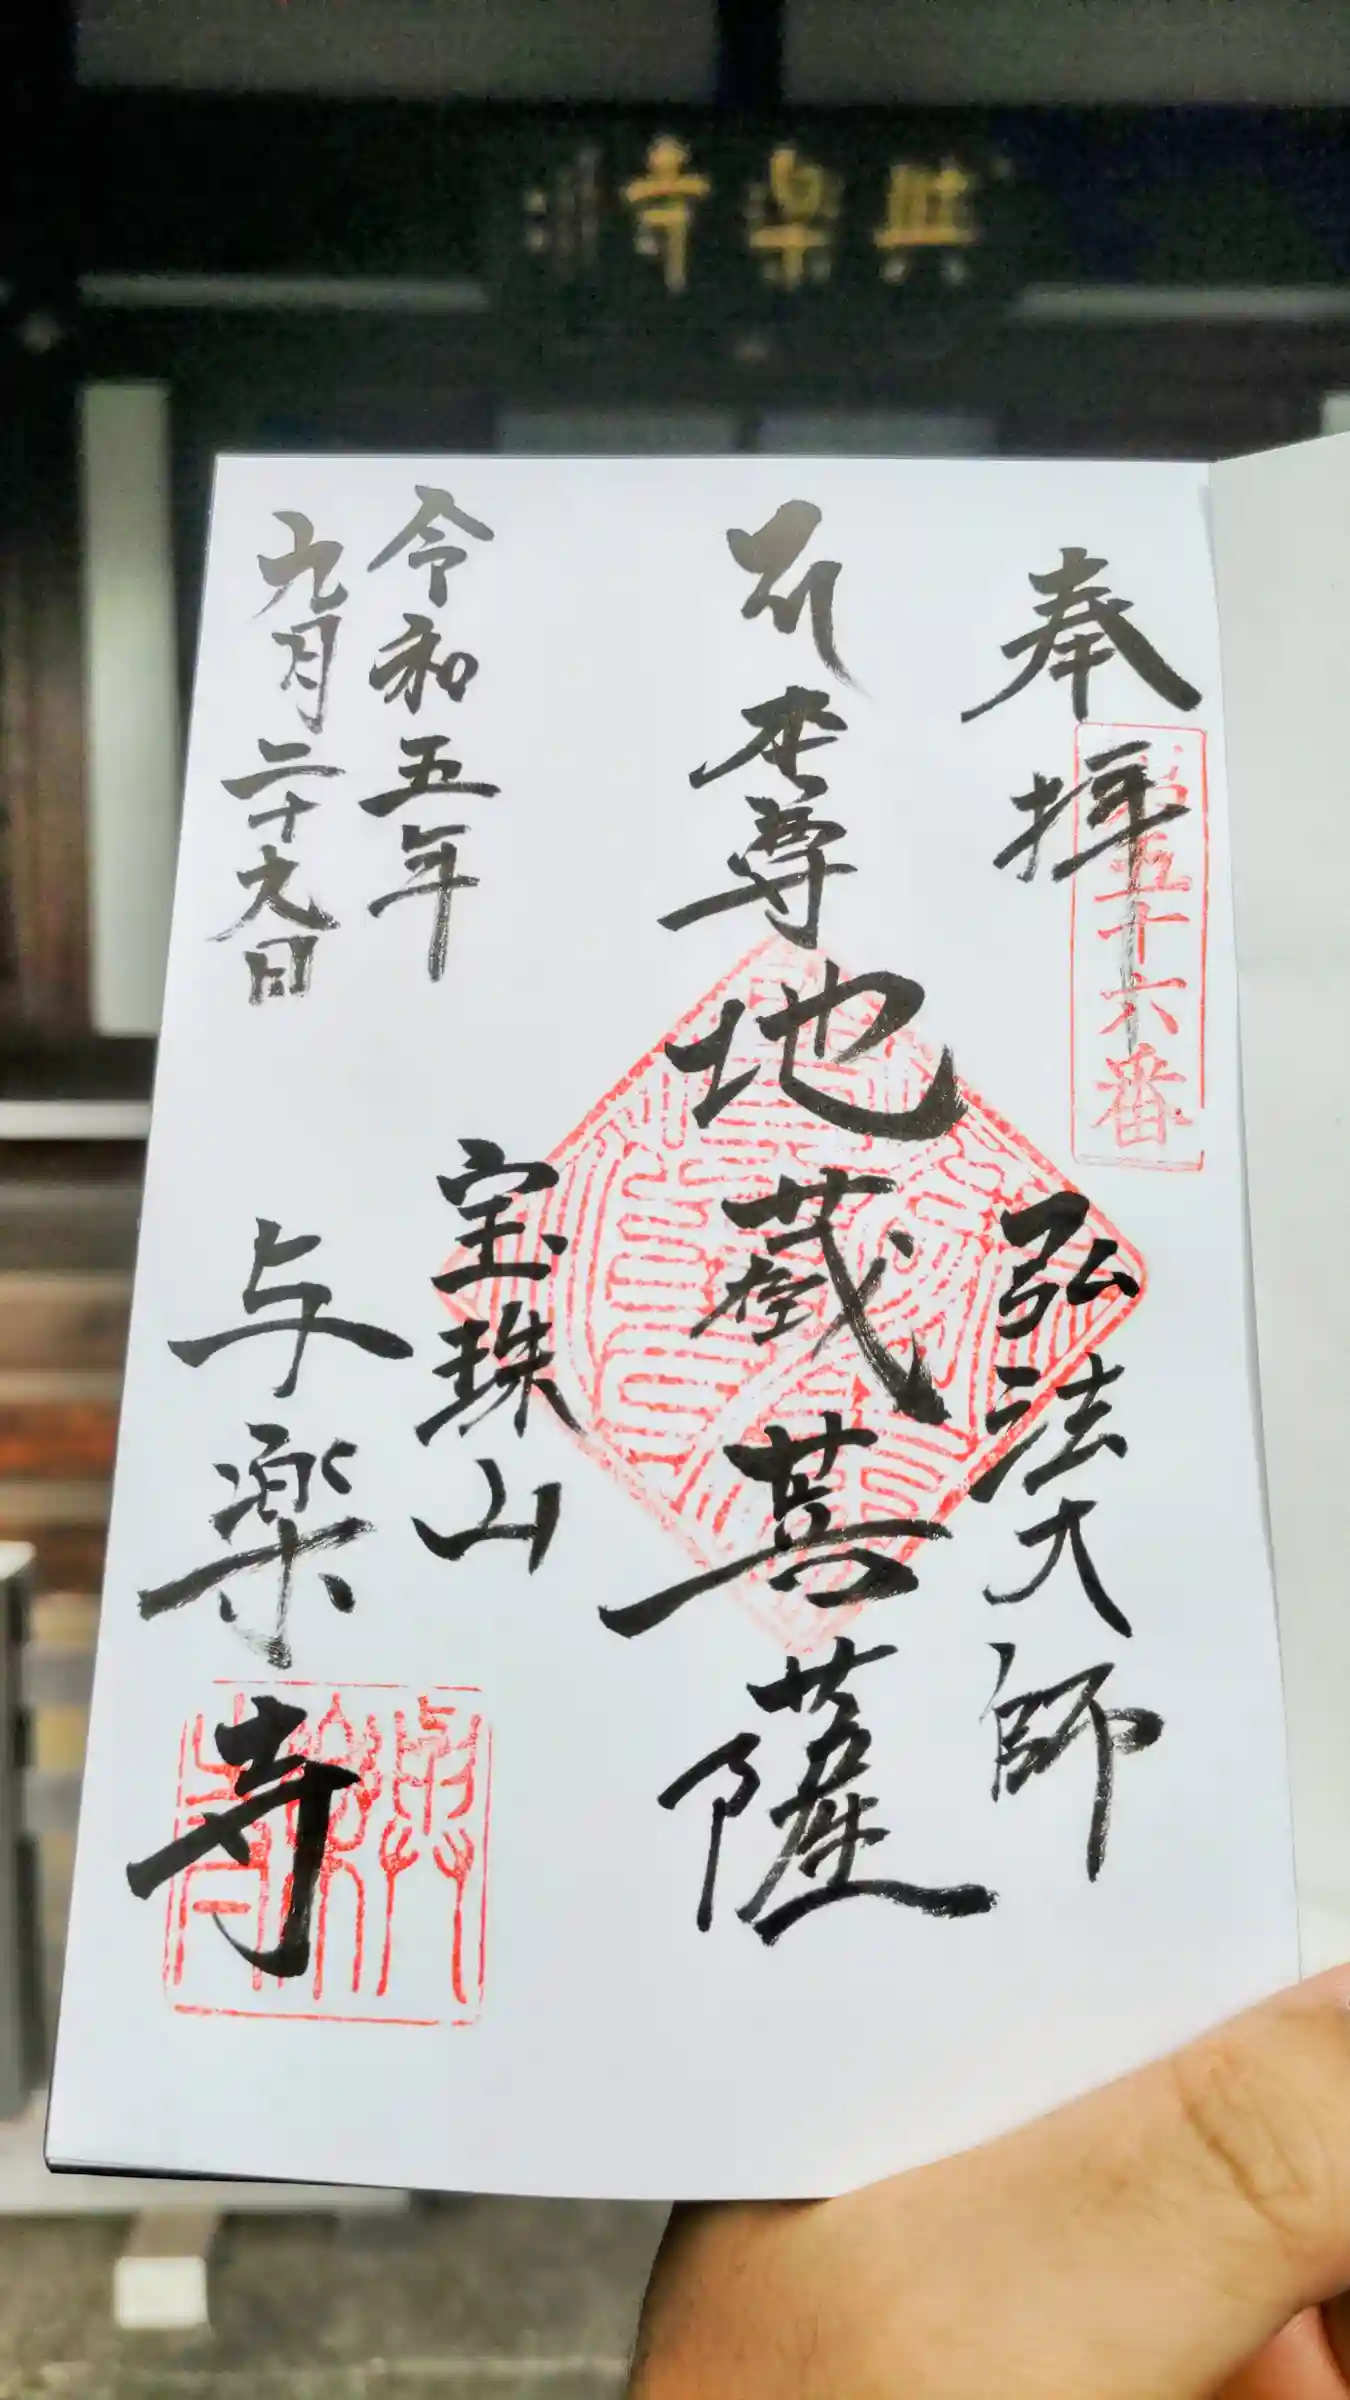 與楽寺
奉拝
第五十六番
弘法大師
本尊
地蔵菩薩
宝珠山
令和五年
九月二十九日
与楽寺